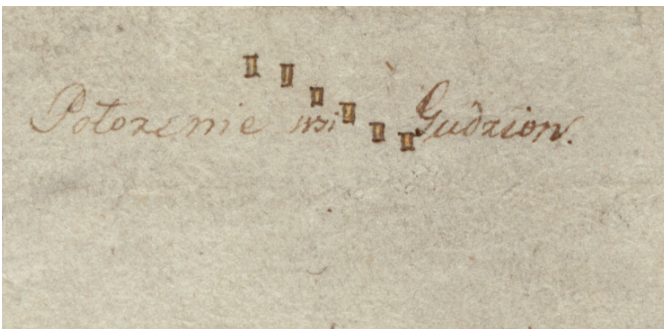 Połozenie wsi Gudzion.